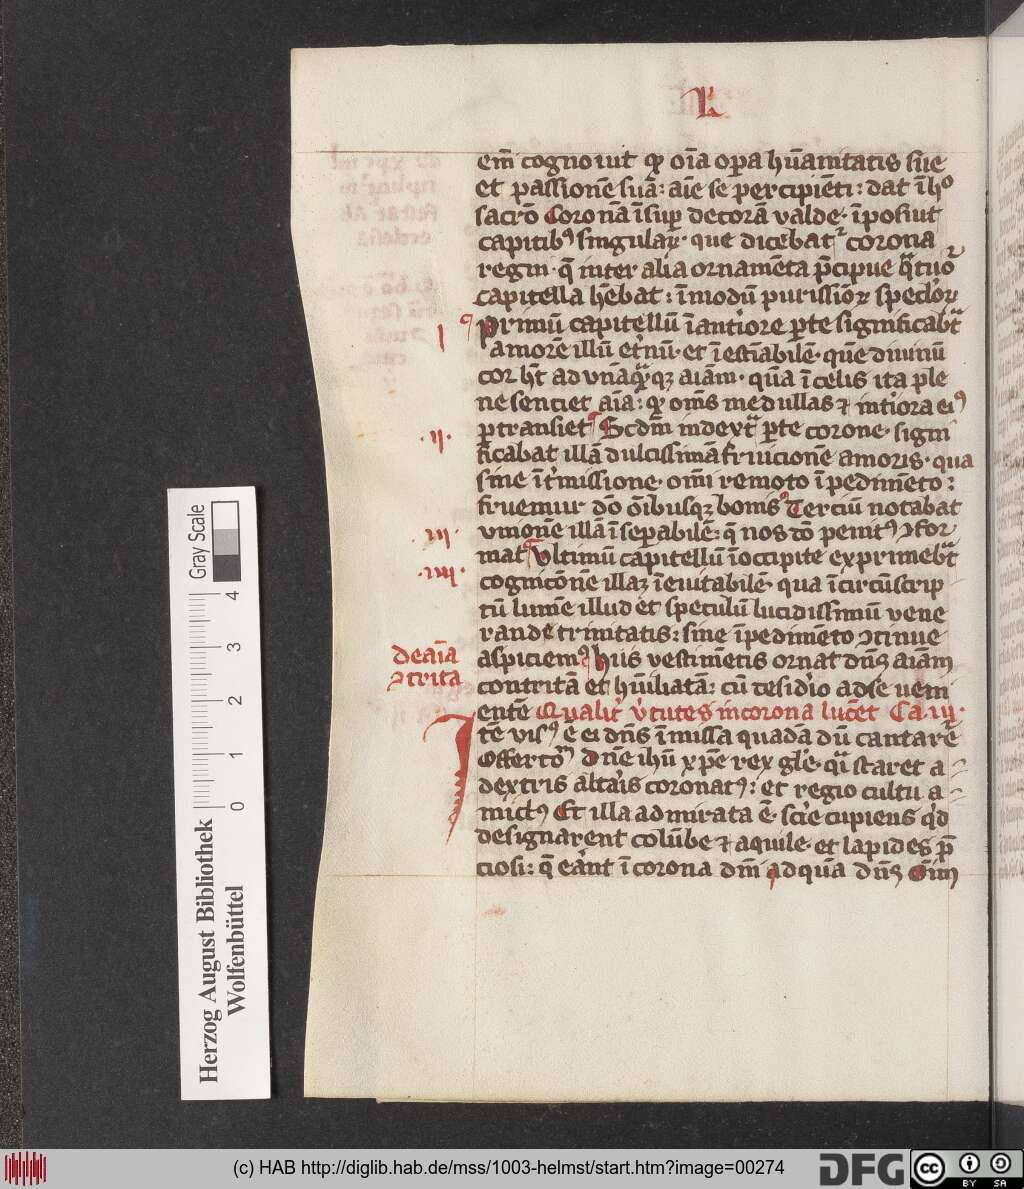 L
em̄ cognouit qꝫ oīa opa hūanitatis sue
et passionē suā: aīe se percipiēti: dat ī hº
sacrō Coronā īsup decorā valde· īposuit
capitibꝰ singulaꝝ· que dicebat᷑ corona
regni· q̄ inter alia ornamēta p̄cipue q̄tuor
capitella hēbat: ī modū purissioꝝ speculoꝝ
Primū capitellū ī antiore ꝑte significabat
i
amorē illū et'nū· et īestīabilē· quē diuinū
cor hēt ad vnāqūaqꝫ aīam· quā ī celis ita ple
ne senciet aīa: qꝫ om̄s medullas ⁊ int'iora eiꝰ
ꝑtransiet Scdm̄ in dext̄a ꝑte corone· signi
·ii·
ficabat illā dulcissimā fruicionē amoris· qua
sine īt'missione· om̄i remoto īpedimēto:
fruemur dō ōibusqꝫ bonis Terciū notabat
vnionē illā īsepabilē· q̄ nos dō penitꝰ ꝯfor
·iii·
mat Vltimū capitellū ī occipite exprimebat
·iiii·
cognicōnē illaꝫ īeuitabilē· qua īcircūscrip
tū lumē illud et speculū lucidissimū vene
rande trinitatis: sine īpedimēto ꝯtinue
de aīa
ꝯtrita
aspiciemꝰ hiis vestimētis ornat dn̄s aīam
contritā et hūiliatā: cū desid'io ad se ueni
entē Qualit' v'tutes in corona lucēt Ca·iii·
Itē visꝰ ē ei dn̄s ī missa quadā dū cantarē
Offertō dn̄e ihū xp̄e rex gl'e· q̄i staret a
dextris altaris coronatꝰ: et regio cultu a
mictꝰ Et illa admirata ē· sc'ie cupiens qd
designarent colūbe ⁊ aquile· et lapides p̄
ciosi: q̄ eānt ī corona dn̄i ad quā dn̄s Cūm
Gray Scale
0 1 2 3 4
Herzog August Bibliothek
Wolfenbüttel
(c) HAB http://diglib.hab.de/mss/1003-helmst/start.htm?image=00274
DFG
cc
BY SA